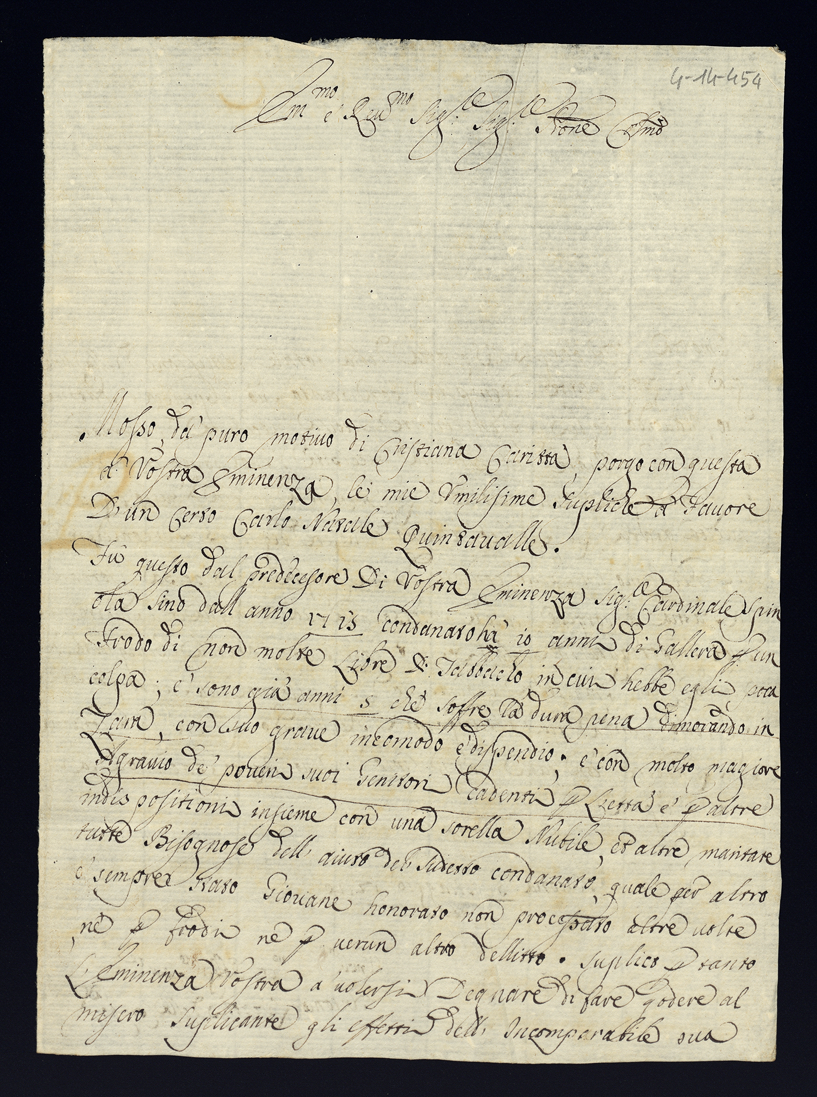 4-14-454
Em.mo e Reu.mo Sig.re Sig.re Prone Colmo
Mosso da' puro motiuo di Cristiana Caritta, porgo con questa
a' Vostra Eminenza, le mie Vmilisime supliche a' fauore
Di un Certo Carlo Natale Quintaualle.
Fù questo dal predecesore Di Vostra Eminenza sig.r Cardinale spin
ola sino dall anno 1713 condanato ha 10 anni di Gallera p un
Frodo di non molte Libre Di Tabbaccho in cui hebbe egli poca
colpa; e' sono già anni 5 che soffre La dura pena dimorando in
Zara, con suo graue incomodo e dispendio; e con molto magiore
Agrauio de' poueri suoi Genitori Cadenti p L'ettà e' p altre
indispositioni insieme con una sorella Nubile, et altre maritate
tutte Bisognose dell' aiuto del sudetto condanato, quale per altro
e' sempre stato Giouane honorato non processato altre uolte
nè p frodi ne p uerun altro dellitto. suplico p tanto
L'Eminenza Vostra a' uolersi Degnare di fare godere al
misero suplicante gli effetti dell' Incomparabile sua